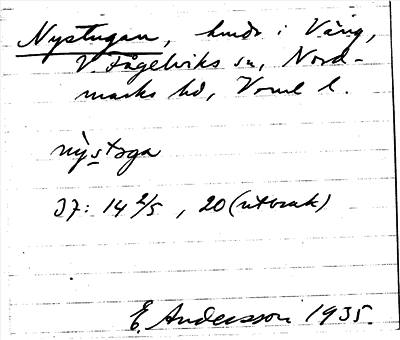 Nystugan, hmdr i Väng,
V. Fågelviks sn, Nord-
marks hd, Vrml l.
nỳstoga
J7: 14 2/5, 20 (utbruk)
E. Andersson 1935.